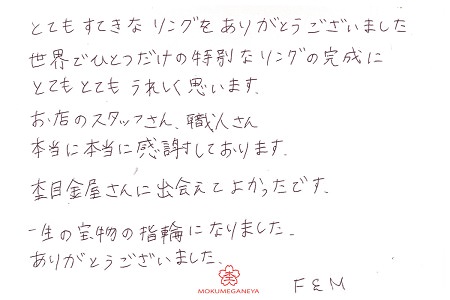 とてもすてきなリングをありがとうございました
世界でひとつだけの特別なリングの完成に
とてもとてもうれしく思います.
お店のスタッフさん、職人さん
本当に本当に感謝しております.
杢目金屋さんに出会えてよかったです.
一生の宝物の指輪になりました.
ありがとうございました.
MOKUMEGANEYA
F&M